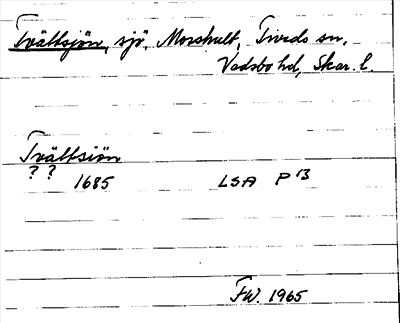 Tvättsjön, sjö, Morshult, Tiveds sn,
Vadsbo hd, Skar. l.
Tvältsiön
? ? 1685 LSA P 13
FW. 1965